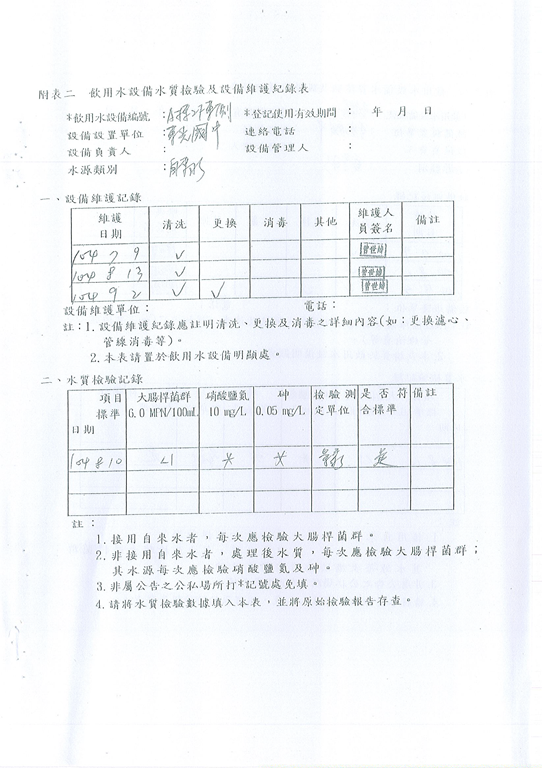 附表二 飲用水設備水質檢驗及設備維護紀錄表
*飲用水設備編號 : *登記使用有效期間 : 年 月 日
設備設置單位 : 國中 連絡電話 :
設備負責人 : 設備管理人 :
水源類別 : 自來水
一、設備維護記錄
維護日期 清洗 更換 消毒 其他 維護人員簽名 備註
104 7 9 ✓
104 8 13 ✓
104 9 2 ✓ ✓
設備維護單位: 電話:
註:1.設備維護紀錄應註明清洗、更換及消毒之詳細內容(如:更換濾心、
管線消毒等)。
2.本表請置於飲用水設備明顯處。
二、水質檢驗記錄
項目 標準 日期 大腸桿菌群 6.0 MFN/100mL 硝酸鹽氮 10 mg/L 砷 0.05 mg/L 檢驗測定單位 是否符合標準 備註
104 8 10 <1 是
註:
1.接用自來水者,每次應檢驗大腸桿菌群。
2.非接用自來水者,處理後水質,每次應檢驗大腸桿菌群;
其水源每次應檢驗硝酸鹽氮及砷。
3.非屬公告之公私場所打*記號處免填。
4.請將水質檢驗數據填入本表,並將原始檢驗報告存查。